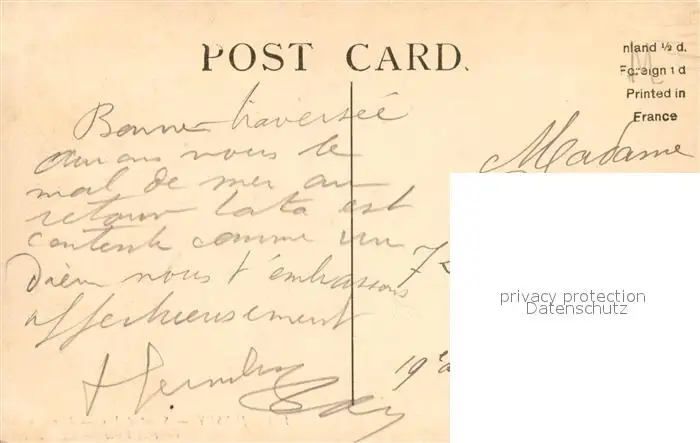 POST CARD.
nland ½ d.
Foreign 1 d
Printed in
France
Bonne traversée
aurons nous le
mal de mer au
retour tata est
contente comme un
Dieu nous t'embrassons
affectueusement
Madame
72
19e
privacy protection
Datenschutz